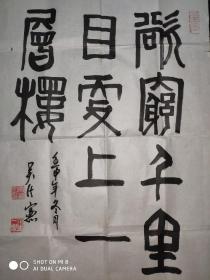 欲窮千里
目更上一
層樓
年冬月
SHOT ON MI 8
AI DUAL CAMERA